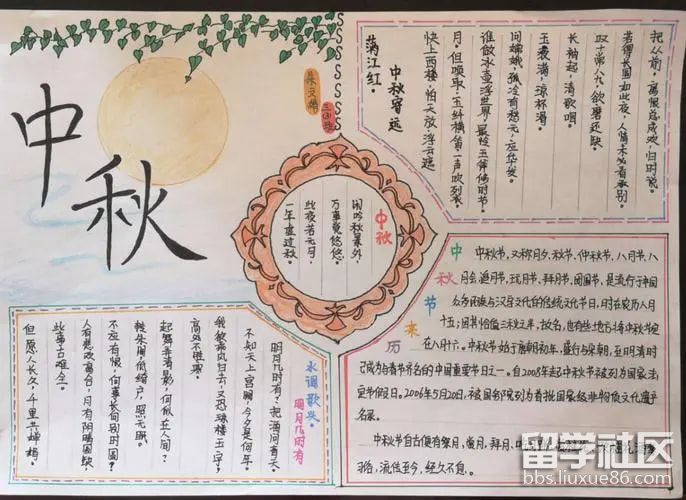 中秋
满江红·
中秋寄远
快上西楼,怕天放浮云遮
月。但唤取,玉纤横笛一声吹裂。
谁做冰壶浮世界,最怜玉斧修时节。
问嫦娥,孤冷有愁无,应华发。
玉液满,琼杯滑。
长袖起,清歌咽。
叹十常八九,欲磨还缺。
若得长圆如此夜,人情未必看承别。
把从前,离恨总成欢,归时说。
中秋
闲吟秋景外,
万事觉悠悠。
此夜若无月,
一年虚过秋。
水调歌头·
明月几时有
明月几时有?把酒问青天。
不知天上宫阙,今夕是何年。
我欲乘风归去,又恐琼楼玉宇,
高处不胜寒。
起舞弄清影,何似在人间?
转朱阁,低绮户,照无眠。
不应有恨,何事长向别时圆?
人有悲欢离合,月有阴晴圆缺,
此事古难全。
但愿人长久,千里共婵娟。
中秋节来历
中秋节,又称月夕、秋节、仲秋节、八月节、八
月会、追月节、玩月节、拜月节、团圆节,是流行于中国
众多民族与汉字文化的传统文化节日,时在农历八月
十五;因其恰值三秋之半,故名,也有些地方将中秋节定
在八月十六。中秋节始于唐朝初年,盛行与宋朝,至明清时
已成为与春节齐名的中国重要节日之一。自2008年起中秋节被列为国家法
定节假日。2006年5月20日,被国务院列为首批国家级非物质文化遗产
名录。
中秋节自古便有祭月、赏月、拜月、
流传至今,经久不息。
留学社区
bbs.liuxue86.com